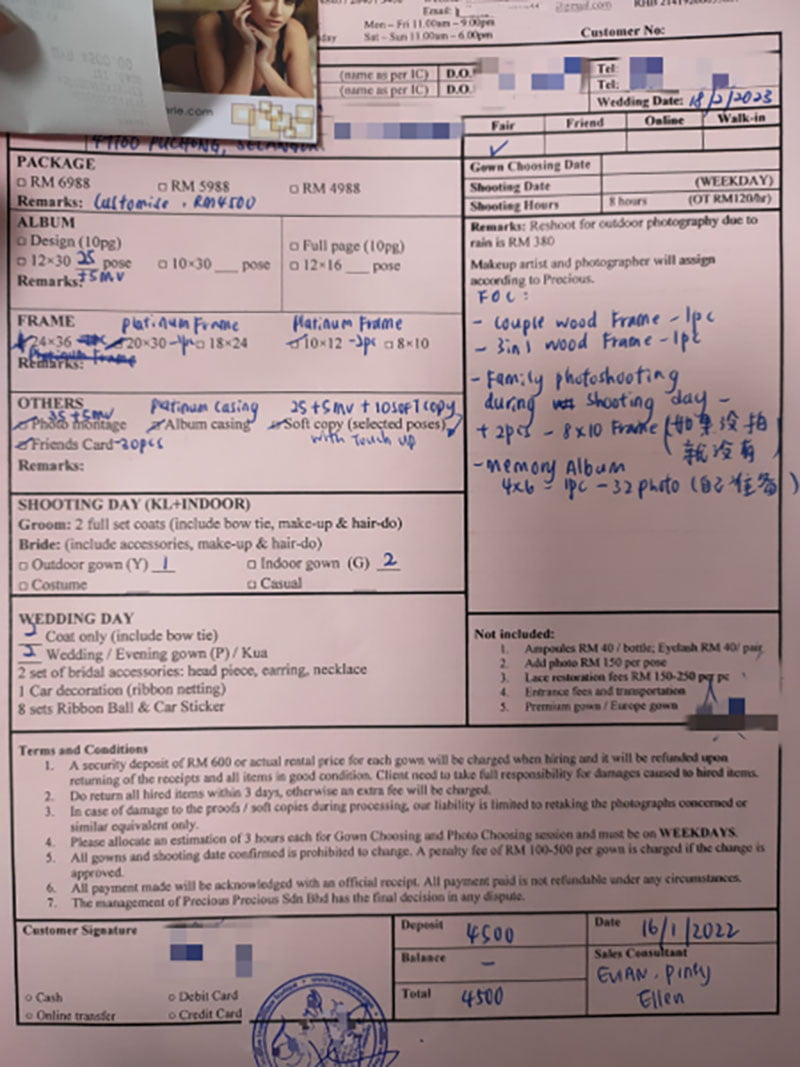 Email:
@gmail.com
Mon – Fri 11.00am – 9.00pm
Sat – Sun 11.00am – 6.00pm
Customer No:
(name as per IC) D.O. Tel:
(name as per IC) D.O. Tel:
Wedding Date: 18/2/2023
47100 PUCHONG, SELANGOR
Fair Friend Online Walk-in
✓
PACKAGE
□ RM 6988 □ RM 5988 □ RM 4988
Remarks: Customise . RM4500
ALBUM
□ Design (10pg) □ Full page (10pg)
□ 12×30 25 pose □ 10×30 ___ pose □ 12×16 ___ pose
Remarks: +5mv
FRAME Platinum Frame Platinum Frame
24×36 20×30 -1pc □ 18×24 10×12 -2pc □ 8×10
Remarks:
OTHERS
35+5mv Platinum Casing 25+5mv + 10 soft copy
Photo montage Album casing Soft copy (selected poses)
with Touch up
Friends Card -20pcs
Remarks:
SHOOTING DAY (KL+INDOOR)
Groom: 2 full set coats (include bow tie, make-up & hair-do)
Bride: (include accessories, make-up & hair-do)
□ Outdoor gown (Y) 1 □ Indoor gown (G) 2
□ Costume □ Casual
WEDDING DAY
Coat only (include bow tie)
Wedding / Evening gown (P) / Kua
2 set of bridal accessories: head piece, earring, necklace
1 Car decoration (ribbon netting)
8 sets Ribbon Ball & Car Sticker
Gown Choosing Date
Shooting Date (WEEKDAY)
Shooting Hours 8 hours (OT RM120/hr)
Remarks: Reshoot for outdoor photography due to
rain is RM 380
Makeup artist and photographer will assign
according to Precious.
FOC:
- Couple wood Frame - 1pc
- 3in1 wood Frame - 1pc
- Family photoshooting
during shooting day -
+ 2pcs - 8x10 Frame (如果没拍
就没有)
- Memory Album
4x6 = 1pc - 32 photo (自己准备)
Not included:
1. Ampoules RM 40 / bottle; Eyelash RM 40/ pair
2. Add photo RM 150 per pose
3. Lace restoration fees RM 150-250 per pc
4. Entrance fees and transportation
5. Premium gown / Europe gown
Terms and Conditions
1. A security deposit of RM 600 or actual rental price for each gown will be charged when hiring and it will be refunded upon
returning of the receipts and all items in good condition. Client need to take full responsibility for damages caused to hired items.
2. Do return all hired items within 3 days, otherwise an extra fee will be charged.
3. In case of damage to the proofs / soft copies during processing, our liability is limited to retaking the photographs concerned or
similar equivalent only.
4. Please allocate an estimation of 3 hours each for Gown Choosing and Photo Choosing session and must be on WEEKDAYS.
5. All gowns and shooting date confirmed is prohibited to change. A penalty fee of RM 100-500 per gown is charged if the change is
approved.
6. All payment made will be acknowledged with an official receipt. All payment paid is not refundable under any circumstances.
7. The management of Precious Precious Sdn Bhd has the final decision in any dispute.
Customer Signature
○ Cash ○ Debit Card
○ Online transfer ○ Credit Card
Deposit 4500
Balance –
Total 4500
Date 16/1/2022
Sales Consultant
EUAN. Pinky
Ellen